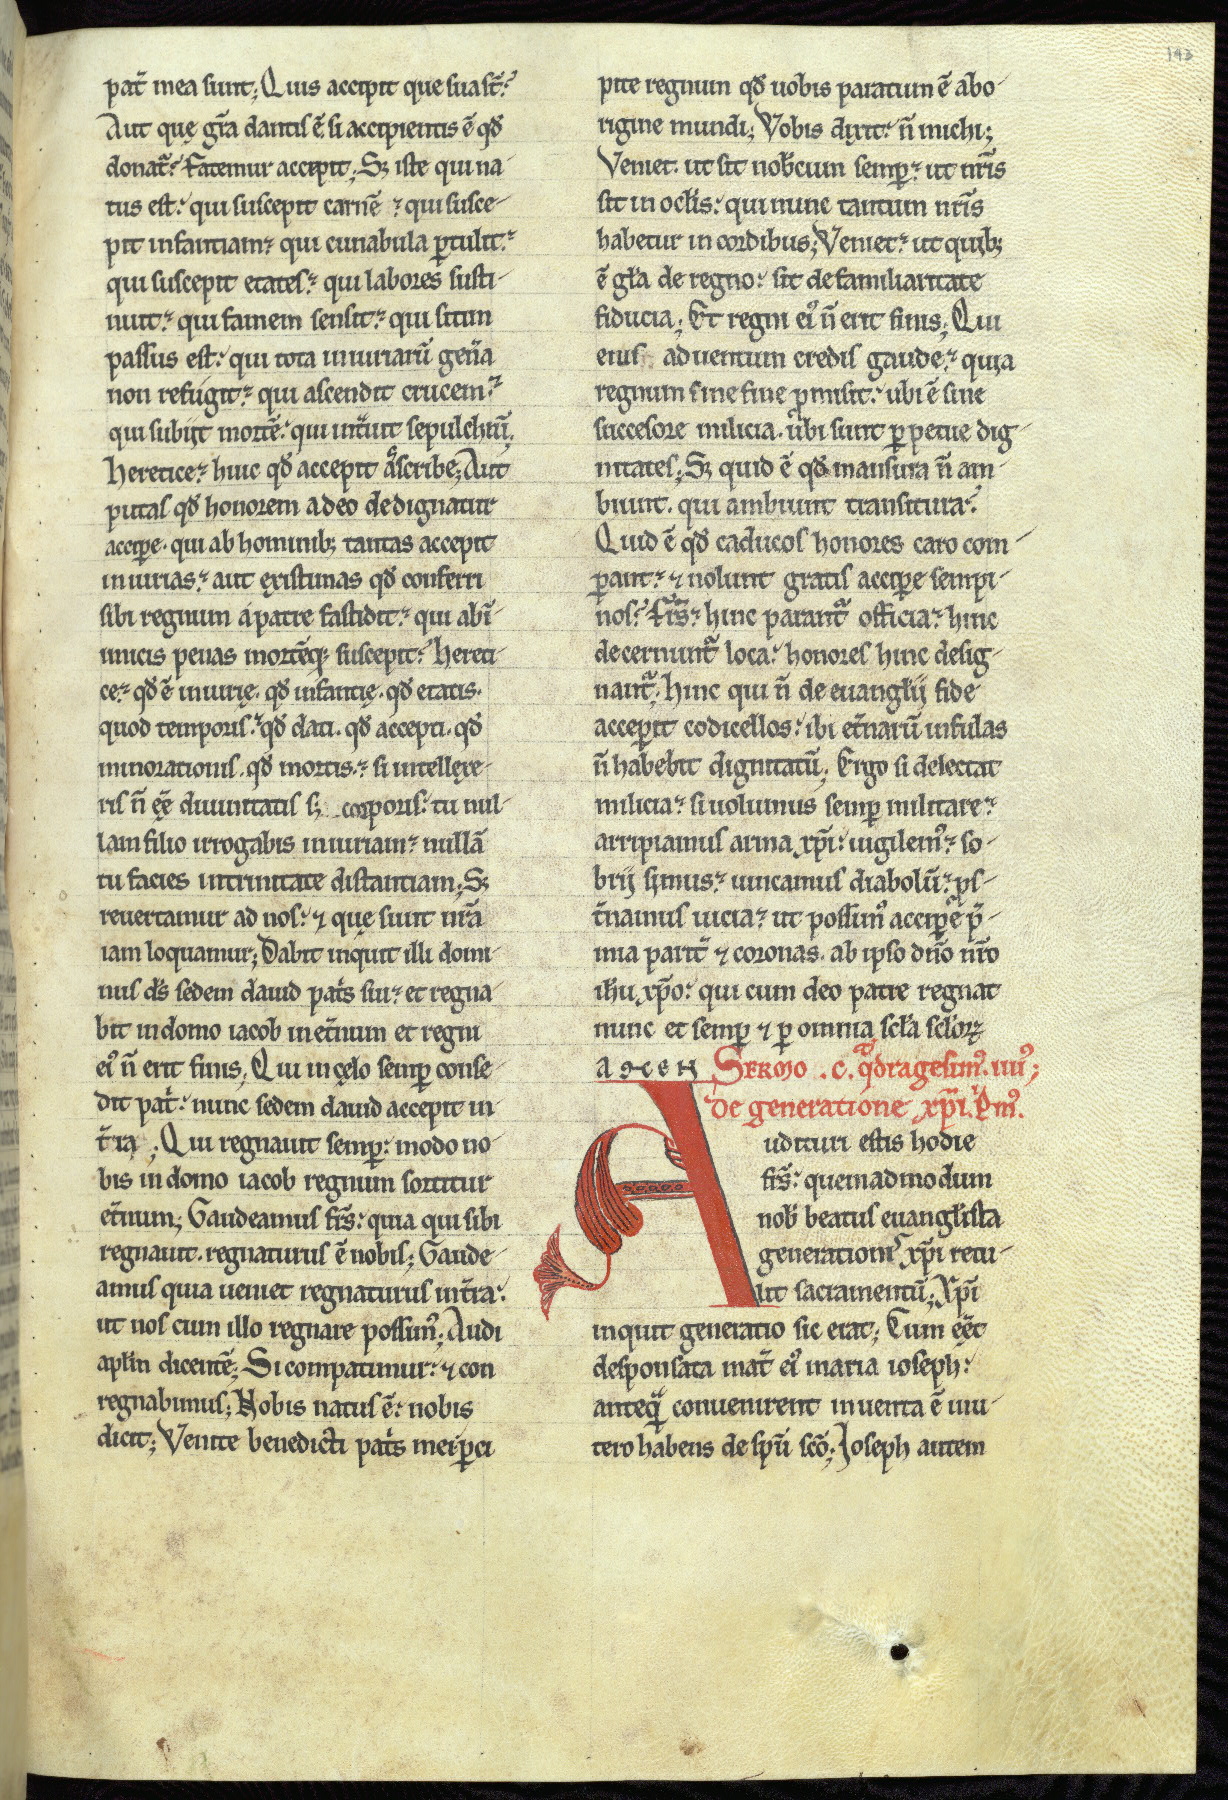 143
pat̄ mea sunt; Quis accipit que sua st̄?
Aut quę gr̄a dantis ē si accipientis ē qđ
donat᷑? Fatemur accepit; Sꝫ iste qui na-
tus est: qui suscepit carnē ⁊ qui susce-
pit infantiam: qui cunabula ꝑtulit:
qui suscepit etates: qui labores susti-
nuit: qui famem sensit: qui sitim
passus est: qui tota iniuriarū gen̄a
non refugit: qui ascendit crucem:
qui subijt mortē: qui int̄uit sepulchrū.
Heretice: hinc qđ accepit ascribe; Aut
putas qđ honorem a deo dedignatur
accipe. qui ab hominibꝫ tantas accepit
iniurias: aut existimas qđ conferri
sibi regnum a patre fastidit: qui ab ī-
imicis penas mortēqꝫ suscepit? Hereti-
ce: qđ ē iniurię. qđ infantię. qđ etatis.
quod temporis: qđ dati. qđ accepti. qđ
minorationis. qđ mortis: si intellexe-
ris n̄ eę̄ diuinitatis sꝫ corporis: tu nul-
lam filio irrogabis iniuriam: nullā
tu facies in trinitate distantiam; Sꝫ
reuertamur ad nos: ⁊ que sunt nr̄a
iam loquamur; Dabit inquit illi domi-
nus ds̄ sedem dauid pat̄s sui: et regna-
bit in domo iacob in et̄num et regni
eiꝰ n̄ erit finis; Qui in cęlo semꝑ conse-
dit pat̄: nunc sedem dauid accepit in
t̄ra; Qui regnauit semꝑ: modo no-
bis in domo iacob regnum sortitur
et̄num; Gaudeamus fr̄s: quia qui sibi
regnauit. regnaturus ē nobis; Gaude-
amus quia ueniet regnaturus in t̄ra:
ut nos cum illo regnare possimꝰ; Audi
apl̄m dicentē; Si compatimur: ⁊ con
regnabimus; Nobis natus ē: nobis
dicit; Venite benedicti pat̄s mei ꝑci
pite regnum qđ uobis paratum ē ab o-
rigine mundi; Vobis dixit: n̄ michi;
Veniet. ut sit nobcum semꝑ: ut nr̄is
sit in ocl̄is: qui nunc tantum nr̄is
habetur in cordibus; Veniet: ut quibꝫ
ē gl̄a de regno: sit de familiaritate
fiducia; Et regni eiꝰ n̄ erit finis; Qui
eius aduentum credis gaude: quia
regnum sine fine ꝓmisit: ubi ē sine
succesore milicia. ubi sunt ꝑpetue dig-
nitates; Sꝫ quid ē qđ mansura n̄ am-
biunt. qui ambiunt transitura?
Quid ē qđ caducos honores caro com-
ꝑant: ⁊ nolunt gratis accipe sempi-
nos? Fr̄s: hinc parant᷑ officia: hinc
decernunt᷑ loca: honores hinc desig-
nant᷑; Hinc qui n̄ de euanglij fide
acceꝑit codicellos: ibi et̄narū infulas
n̄ habebit dignitatū; Ergo si delectat
milicia: si uolumus semꝑ militare:
arripiamus arma xp̄i: uigilemꝰ: so-
brij simus: uincamus diabolū: ꝓs-
t̄namus uicia: ut possimꝰ accipe p̄-
mia parit̄ ⁊ coronas. ab ipso dn̄o nr̄o
ih̄u xp̄o: qui cum deo patre regnat
nunc et semꝑ ⁊ ꝑ omnia scl̄a scl̄oꝝ
AMEN Sermo .c. qͣdragesimꝰ. iiii;
De generatione xp̄i. Pͥmꝰ.
Audituri estis hodie
fr̄s: quemadmodum
nob̄ beatus euangl̄ista
generationis xp̄i retu-
lit sacramentū; Xp̄i
inquit generatio sic erat; Cum eēt
desponsata mat̄ eiꝰ maria ioseph:
anteqͣ conuenirent inuenta ē in u-
tero habens de sp̄u scō; Ioseph autem